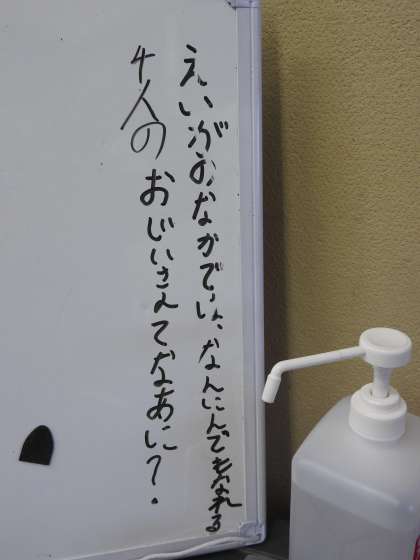 えいがおなかでい、なんにんでもなれる
4人のおじいさんてなあに?